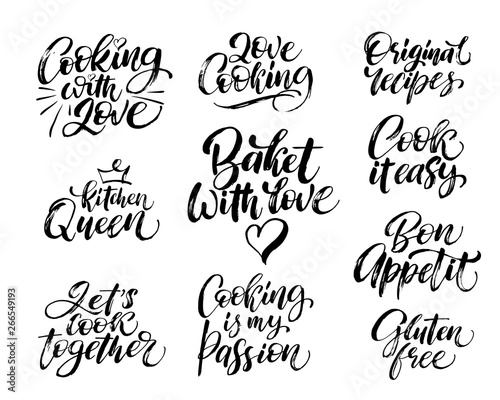 Cooking
with
Love
Love
Cooking
Original
recipes
Kitchen
Queen
Baket
With love
Cook
it easy
Let's
cook
together
Cooking
is my
Passion
Bon
Appetit
Gluten
free
Adobe Stock | #266549193